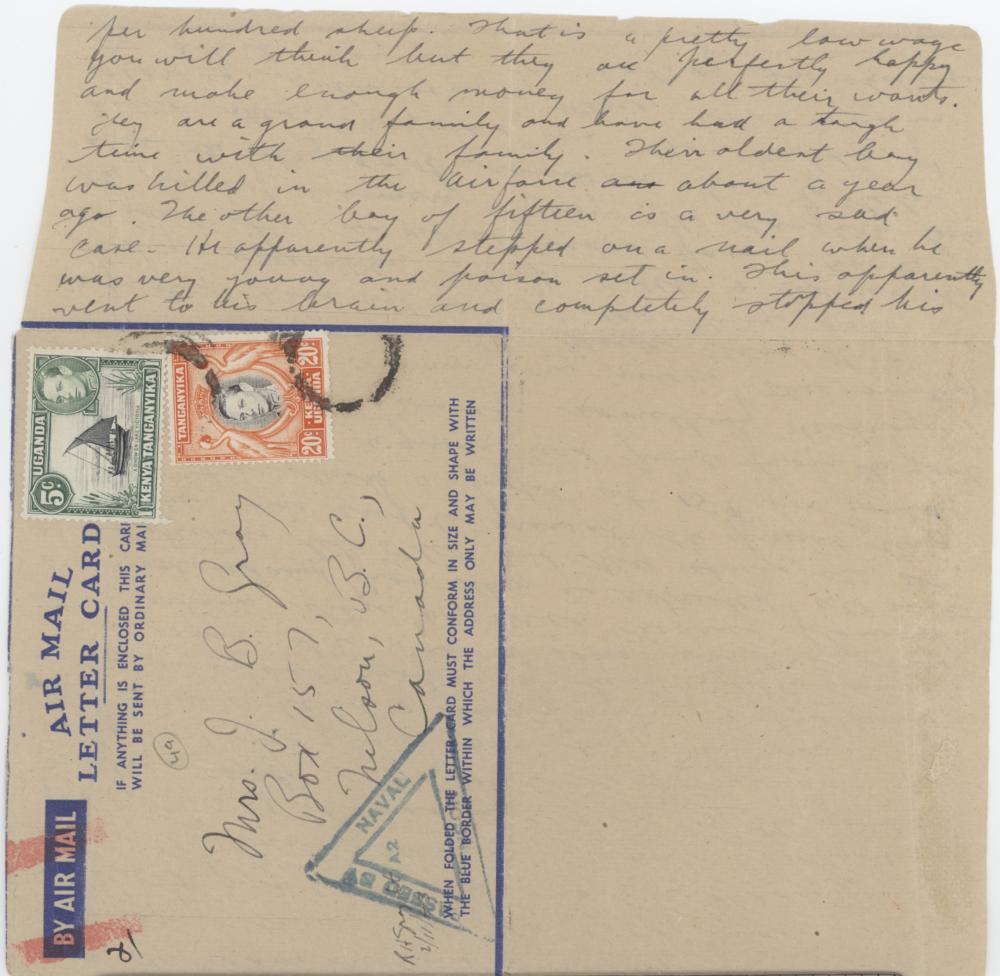 per hundred sheep. That is a pretty low wage
you will think but they are perfectly happy
and make enough money for all their wants.
They are a grand family and have had a tough
time with their family. Their oldest boy
was killed in the airforce about a year
ago. The other boy of fifteen is a very sad
case. He apparently stepped on a nail when he
was very young and poison set in. This apparently
went to his brain and completely stopped his
UGANDA
KENYA TANGANYIKA
5c
TANGANYIKA
KENYA
UGANDA
20c
20c
AIR MAIL
LETTER CARD
IF ANYTHING IS ENCLOSED THIS CARD
WILL BE SENT BY ORDINARY MAIL
49
Mrs. J. B. Gray
Box 157,
Nelson, B.C.,
Canada
WHEN FOLDED THE LETTER CARD MUST CONFORM IN SIZE AND SHAPE WITH
THE BLUE BORDER WITHIN WHICH THE ADDRESS ONLY MAY BE WRITTEN
BY AIR MAIL
2/
NAVAL
A2